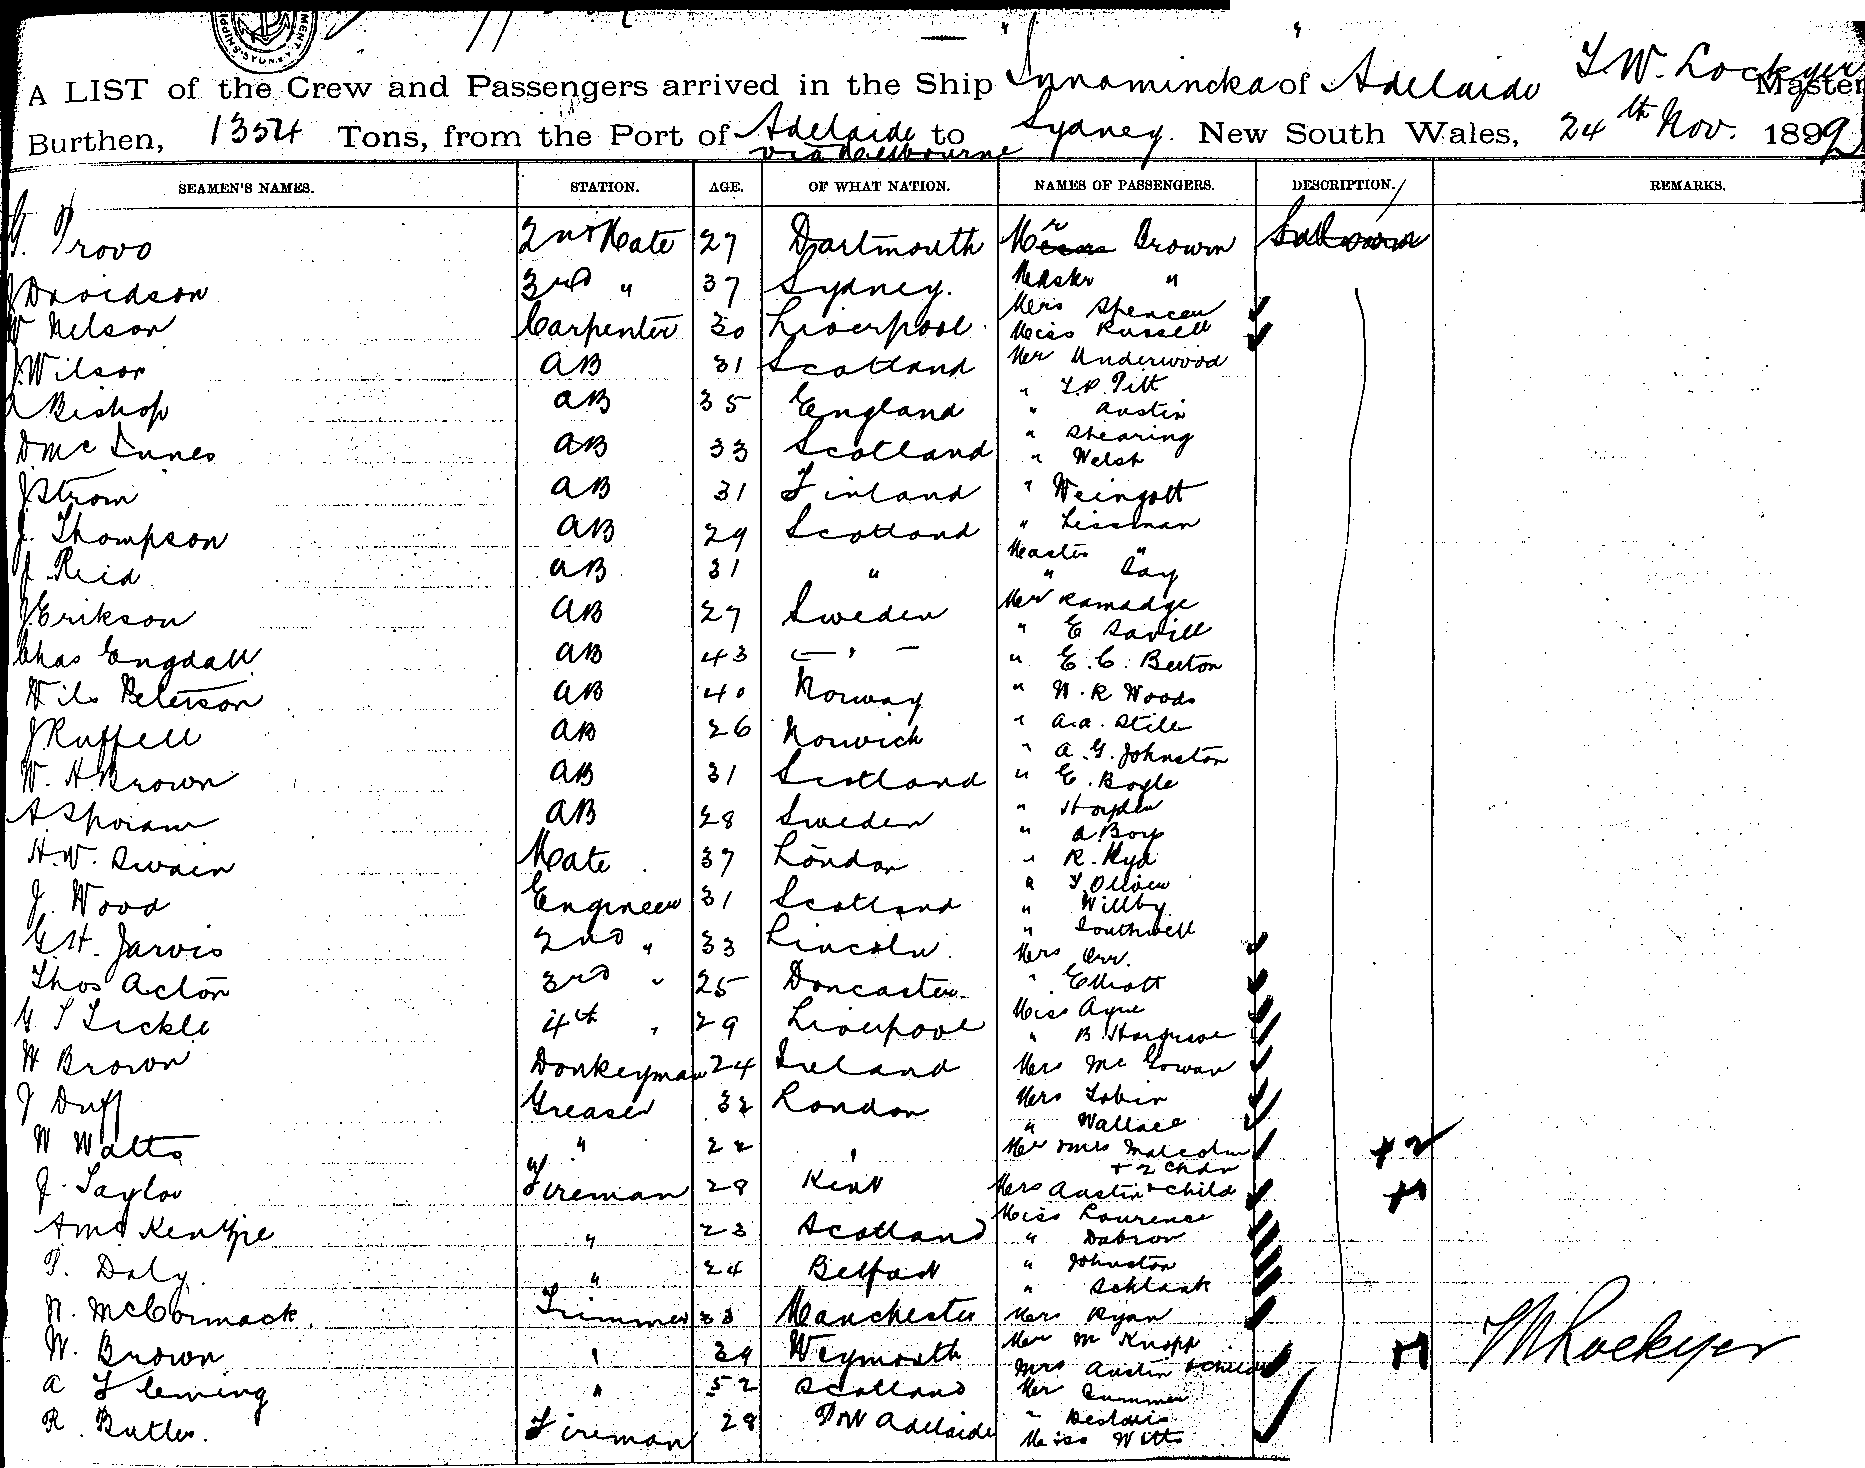 A LIST of the Crew and Passengers arrived in the Ship Innamincka of Adelaide T W. Lockyer Master
Burthen, 1354 Tons, from the Port of Adelaide to Sydney. New South Wales, 24th Nov. 1899
via Melbourne
SEAMEN'S NAMES. STATION. AGE. OF WHAT NATION. NAMES OF PASSENGERS. DESCRIPTION. REMARKS.
G. Provo 2nd Mate 27 Dartmouth Mr Brown Saloon
J Davidson 3rd " 37 Sydney. Master "
Mrs Spencer
W Nelson Carpenter 30 Liverpool. Miss Russell
J. Wilson AB 31 Scotland Mr Underwood
" T.P. Pitt
A Bishop AB 35 England " Austin
" Shearing
D. McInnes AB 33 Scotland " Welsh
J Strom AB 31 Finland " Weingott
J. Thompson AB 29 Scotland " Lissman
Master "
J. Reid AB 31 " " Day
J. Erikson AB 27 Sweden Mr Ramadge
" E Savill
Chas Engdall AB 43 " " E. C. Beeton
Nils Peterson AB 40 Norway " W. R Woods
J Ruffell AB 26 Norwich " A.A. Stile
" A. G. Johnston
W. H. Brown AB 31 Scotland " E. Bogle
" Hayden
A AB 28 Sweden " A Boy
H. W. Swain Mate 37 London " R. Hyd
" T. Oliver
J. Wood Engineer 31 Scotland " Willby
" Southwell
G. H. Jarvis 2nd " 33 Lincoln. Mrs Orr.
Thos Acton 3rd " 25 Doncaster. " Elliott
Miss Ayre
G T Tickle 4th " 29 Liverpool " B. Hargrave
W Brown Donkeyman 24 Ireland Mrs McGowan
J Duff Greaser 32 London Mrs Tobin
" Wallace
W Watts " 22 " Mr & Mrs Malcolm +2
+ 2 Chdn
J. Taylor Fireman 28 Kent Mrs Austin & Child +1
Miss Laurence
A McKenzie " 23 Scotland " Dabron
" Johnston
P. Daly. " 24 Belfast " Schlank
N. McCormack. Trimmer 33 Manchester Mrs Ryan
W. Brown " 34 Weymouth Mr M Knopp
Mrs Austin & Child +1 TWLockyer
A Fleming " 52 Scotland Mr Summer
R. Butler. Fireman 28 Port Adelaide "
Miss Witts